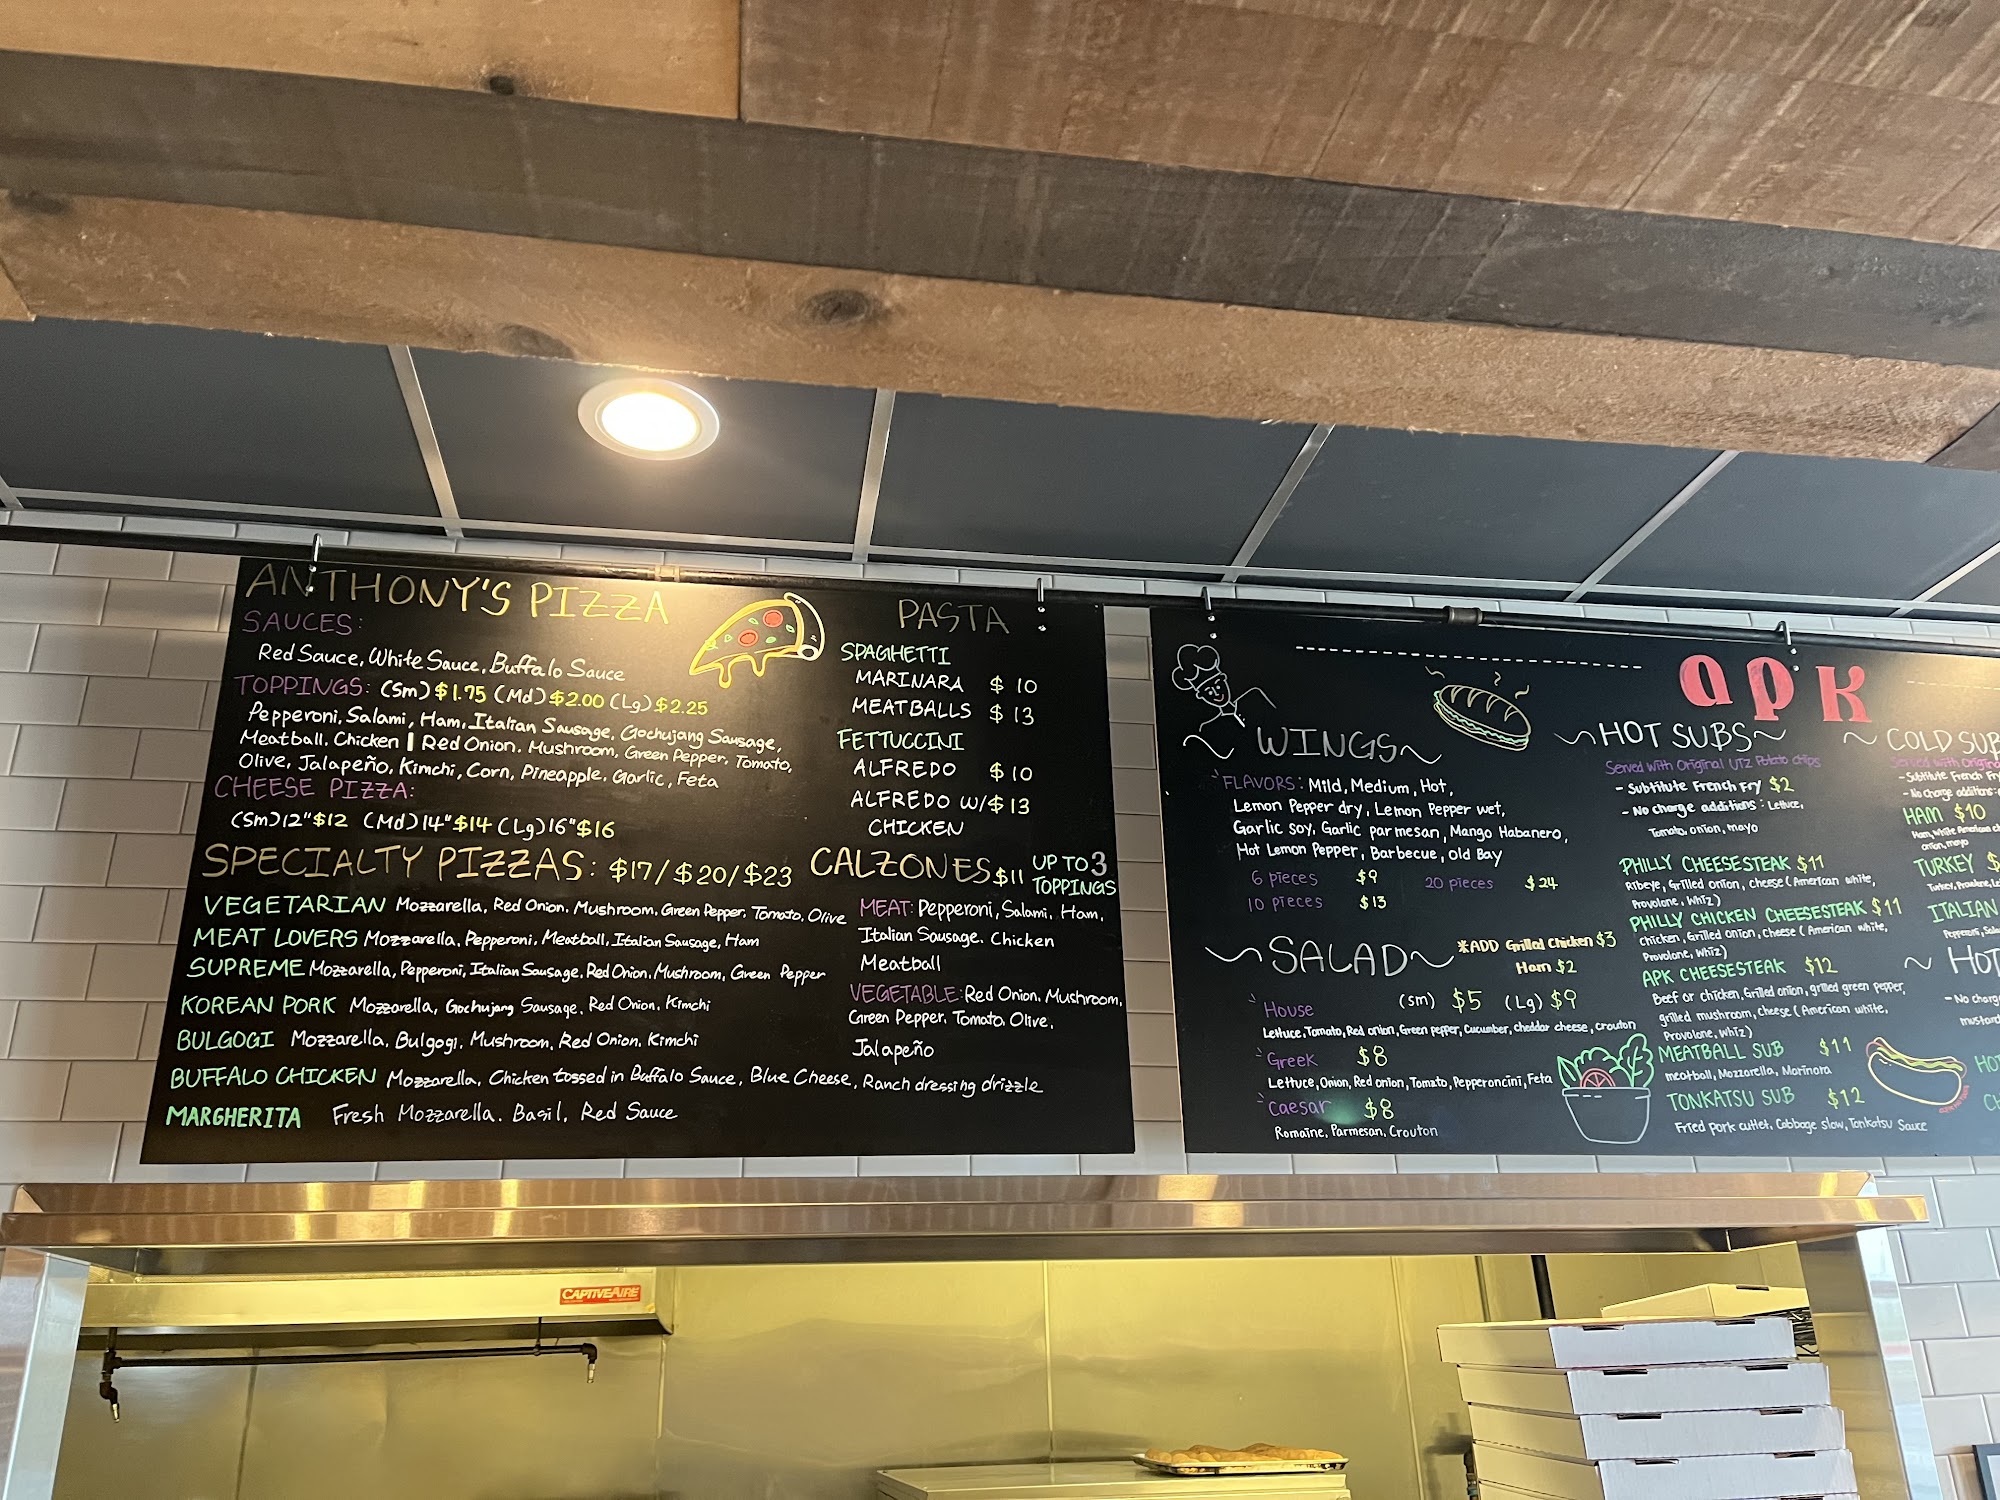 ANTHONY'S PIZZA
SAUCES:
Red Sauce, White Sauce, Buffalo Sauce
TOPPINGS: (Sm) $1.75 (Md) $2.00 (Lg) $2.25
Pepperoni, Salami, Ham, Italian Sausage, Gochujang Sausage,
Meatball, Chicken | Red Onion, Mushroom, Green Pepper, Tomato,
Olive, Jalapeño, Kimchi, Corn, Pineapple, Garlic, Feta
CHEESE PIZZA:
(Sm) 12" $12 (Md) 14" $14 (Lg) 16" $16
SPECIALTY PIZZAS: $17/$20/$23
VEGETARIAN Mozzarella, Red Onion, Mushroom, Green Pepper, Tomato, Olive
MEAT LOVERS Mozzarella, Pepperoni, Meatball, Italian Sausage, Ham
SUPREME Mozzarella, Pepperoni, Italian Sausage, Red Onion, Mushroom, Green Pepper
KOREAN PORK Mozzarella, Gochujang Sausage, Red Onion, Kimchi
BULGOGI Mozzarella, Bulgogi, Mushroom, Red Onion, Kimchi
BUFFALO CHICKEN Mozzarella, Chicken tossed in Buffalo Sauce, Blue Cheese, Ranch dressing drizzle
MARGHERITA Fresh Mozzarella, Basil, Red Sauce
PASTA
SPAGHETTI
MARINARA $10
MEATBALLS $13
FETTUCCINI
ALFREDO $10
ALFREDO W/ $13
CHICKEN
CALZONES $11 UP TO 3
TOPPINGS
MEAT: Pepperoni, Salami, Ham,
Italian Sausage, Chicken
Meatball
VEGETABLE: Red Onion, Mushroom,
Green Pepper, Tomato, Olive,
Jalapeño
apk
WINGS
FLAVORS: Mild, Medium, Hot,
Lemon Pepper dry, Lemon Pepper wet,
Garlic soy, Garlic parmesan, Mango Habanero,
Hot Lemon Pepper, Barbecue, Old Bay
6 pieces $9 20 pieces $24
10 pieces $13
SALAD *ADD Grilled Chicken $3
Ham $2
House (Sm) $5 (Lg) $9
Lettuce, Tomato, Red onion, Green pepper, Cucumber, cheddar cheese, crouton
Greek $8
Lettuce, Onion, Red onion, Tomato, Pepperoncini, Feta
Caesar $8
Romaine, Parmesan, Crouton
HOT SUBS
Served with Original UTZ Potato chips
- Substitute French Fry $2
- No charge additions: Lettuce,
Tomato, onion, mayo
PHILLY CHEESESTEAK $11
Ribeye, Grilled onion, cheese (American white,
Provolone, Whiz)
PHILLY CHICKEN CHEESESTEAK $11
Chicken, Grilled onion, Cheese (American white,
Provolone, Whiz)
APK CHEESESTEAK $12
Beef or chicken, Grilled onion, grilled green pepper,
grilled mushroom, cheese (American white,
Provolone, Whiz)
MEATBALL SUB $11
meatball, Mozzarella, Marinara
TONKATSU SUB $12
Fried pork cutlet, Cabbage slaw, Tonkatsu Sauce
COLD SUB
Served with Original
- Substitute French Fr
- No charge additions:
HAM $10
Ham, White American ch
onion, mayo
TURKEY $
ITALIAN
HOT
- No charg
mustard
HOT
CAPTIVEAIRE